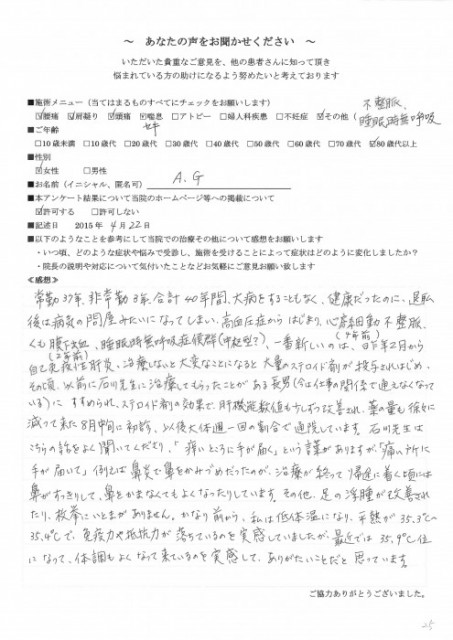 ～ あなたの声をお聞かせください ～
いただいた貴重なご意見を、他の患者さんに知って頂き
悩まれている方の助けになるよう努めたいと考えております
■施術メニュー（当てはまるものすべてにチェックをお願いします） 不整脈、
☑腰痛 ☑肩凝り ☑頭痛 ☑喘息 □アトピー □婦人科疾患 □不妊症 ☑その他（睡眠時無呼吸
■ご年齢
□10歳未満 □10歳代 □20歳代 □30歳代 □40歳代 □50歳代 □60歳代 □70歳代 ☑80歳代以上
■性別
☑女性 □男性
■お名前（イニシャル、匿名可） A.G
■本アンケート結果について当院のホームページ等への掲載について
☑許可する □許可しない
■記述日 2015年 4月22日
■以下のようなことを参考にして当院での治療その他について感想をお願いします
・いつ頃、どのような症状や悩みで受診し、施術を受けることによって症状はどのように変化しましたか？
・院長の説明や対応について気付いたことなどお気軽にご意見お願い致します
≪感想≫
常勤37年、非常勤3年、合計40年間、大病をすることもなく、健康だったのに、退職
後は病気の問屋みたいになってしまい、高血圧症からはじまり、心房細動不整脈、
くも膜下出血、睡眠時無呼吸症候群 一番新しいのは、昨年2月から
自己免疫性肝炎、治療しないと大変なことになると大量のステロイド剤が投与されはじめ、
その頃、以前に石川先生に治療してもらったことがある長男（今は仕事の関係で通えなくなって
いる）にすすめられ、ステロイド剤の効果で、肝機能数値も少しずつ改善され、薬の量も徐々に
減って来た8月中旬に初診、以後大体週一回の割合で通院しています。石川先生は
こちらの話をよく聞いてくださり、「痒い所に手が届く」という言葉がありますが、「痛い所に
手が届いて」例えば鼻炎で鼻をかみづめだったのが、治療が終って帰途に着く頃には
鼻がすっきりして、鼻をかまなくてもよくなったりしています。その他、足の浮腫が改善され
たり、枚挙にいとまがありません。かなり前から、私は低体温になり、平熱が35.3℃や
35.4℃で、免疫力や抵抗力が落ちているのを実感していましたが、最近では35.9℃位
になって、体調もよくなって来ているのを実感して、ありがたいことだと思っています。
ご協力ありがとうございました。
25